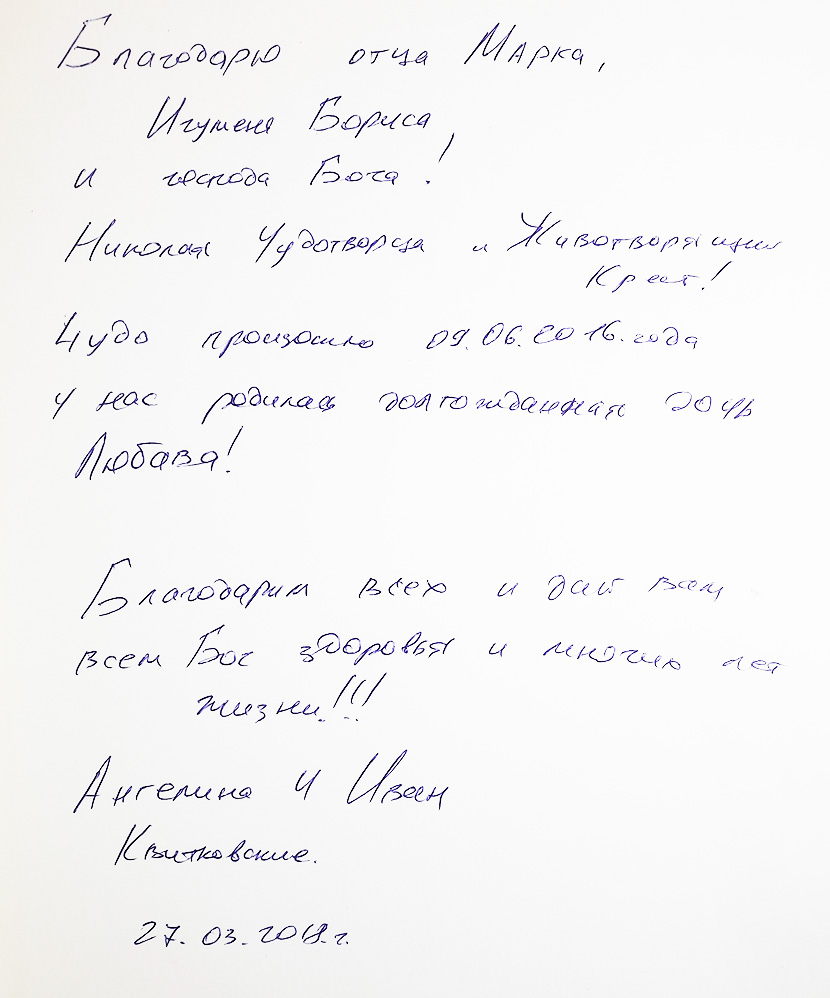 Благодарю отца Марка,
Игумена Бориса
и господа Бога!
Николая Чудотворца и Животворящий
Крест!
Чудо произошло 09.06.2016.года
у нас родилась долгожданная дочь
Любава!
Благодарим всех и дай вам
всем Бог здоровья и многих лет
жизни!!!
Ангелина и Иван
Квитковские.
27.03.2018.г.